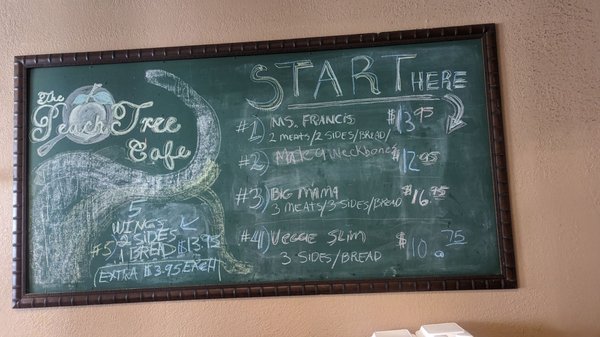 The
Peach Tree
Cafe
START HERE
#1) MS. FRANCIS $13.95
2 MEATS/2 SIDES/BREAD/
#2) Neckbones $12.95
#3) BIG MAMA $16.95
3 MEATS/3 SIDES/BREAD
#4) Veggie Slim $10.75
3 SIDES/BREAD
5
WINGS
2 SIDES
#5 1 BREAD $13.95
(EXTRA $3.95 EACH)